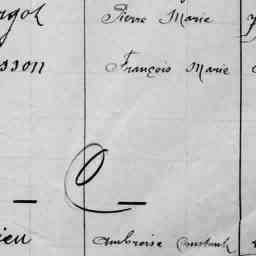 rgol Pierre Marie
sson François Marie
— C —
ieu Ambroise Constant